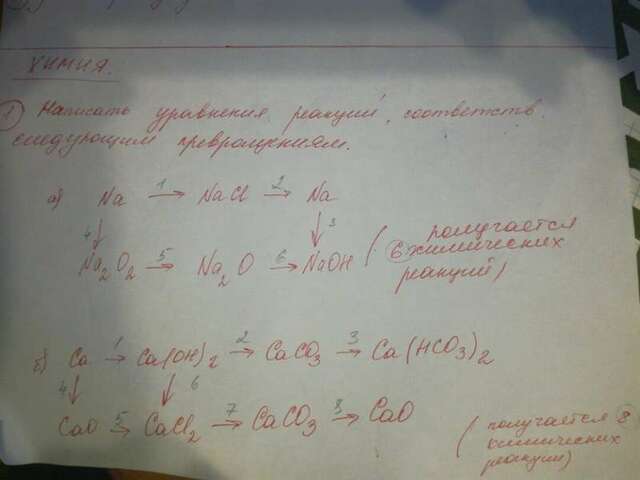 ХИМИЯ.
1) Написать уравнения реакций, соответств.
следующим превращениям.
а) Na 1→ NaCl 2→ Na
4↓ ↓3
Na₂O₂ 5→ Na₂O 6→ NaOH (получается
6 химических
реакций)
б) Ca 1→ Ca(OH)₂ 2→ CaCO₃ 3→ Ca(HCO₃)₂
4↓ ↓6
CaO 5→ CaCl₂ 7→ CaCO₃ 8→ CaO
(получается 8
химических
реакций)